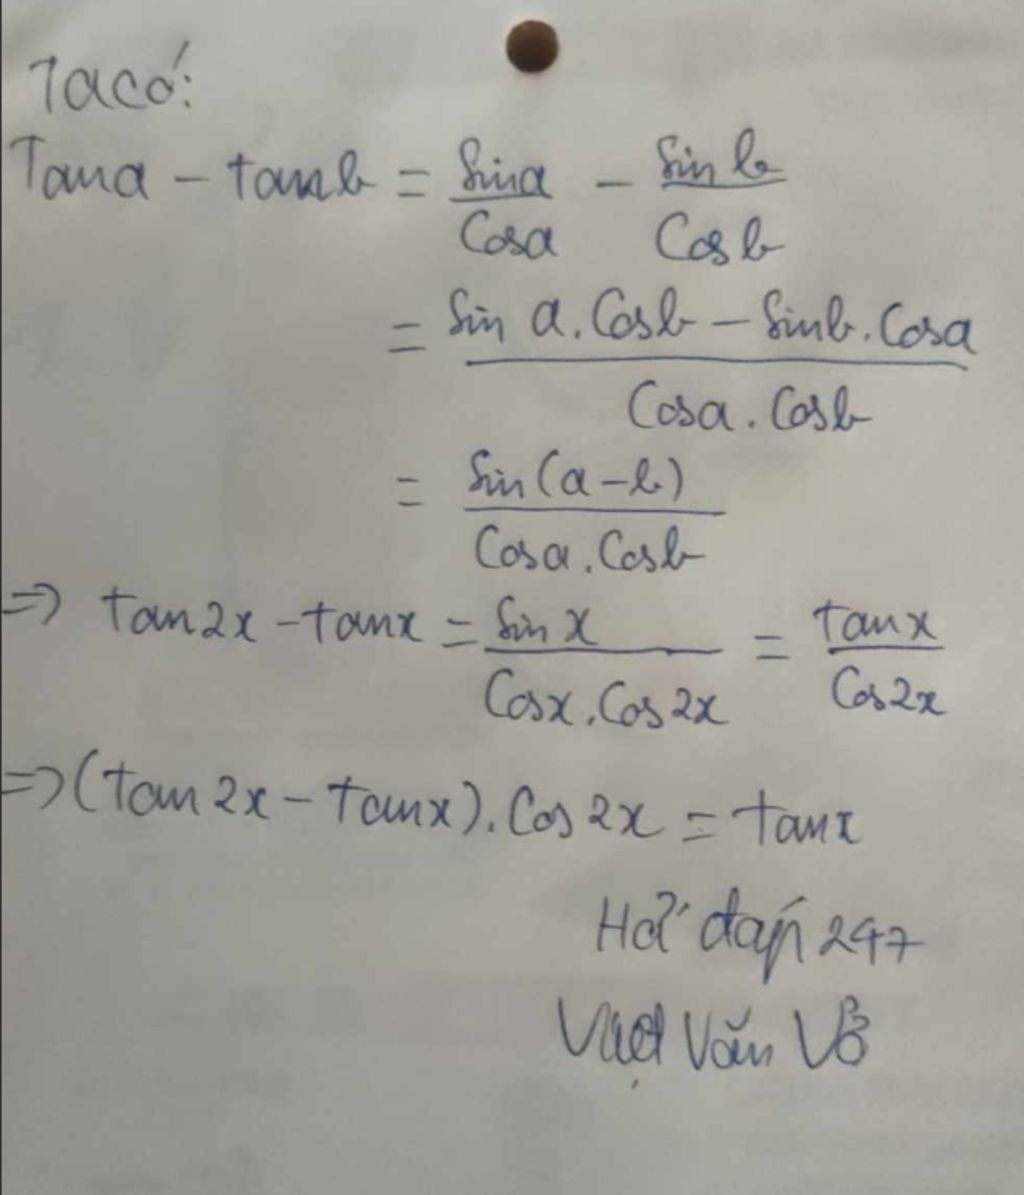 Ta có:
Tana - tanb = Sina/Cosa - Sin b/Cos b
= Sin a.Cosb - Sinb.Cosa/Cosa.Cosb
= Sin(a-b)/Cosa.Cosb
=> tan2x - tanx = Sin x/Cosx.Cos2x = tanx/Cos2x
=> (tan 2x - tanx).Cos 2x = tanx
đáp 247
Văn